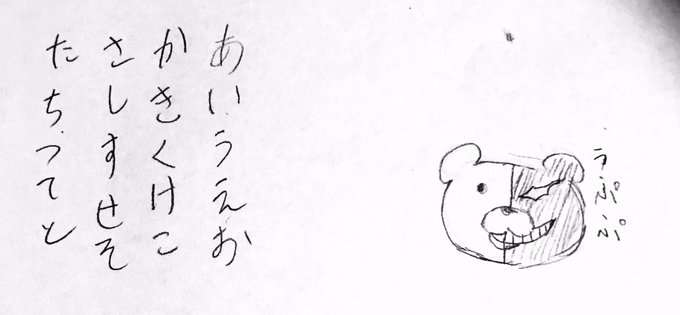 あいうえお
かきくけこ
さしすせそ
たちつてと
うぷぷぷ